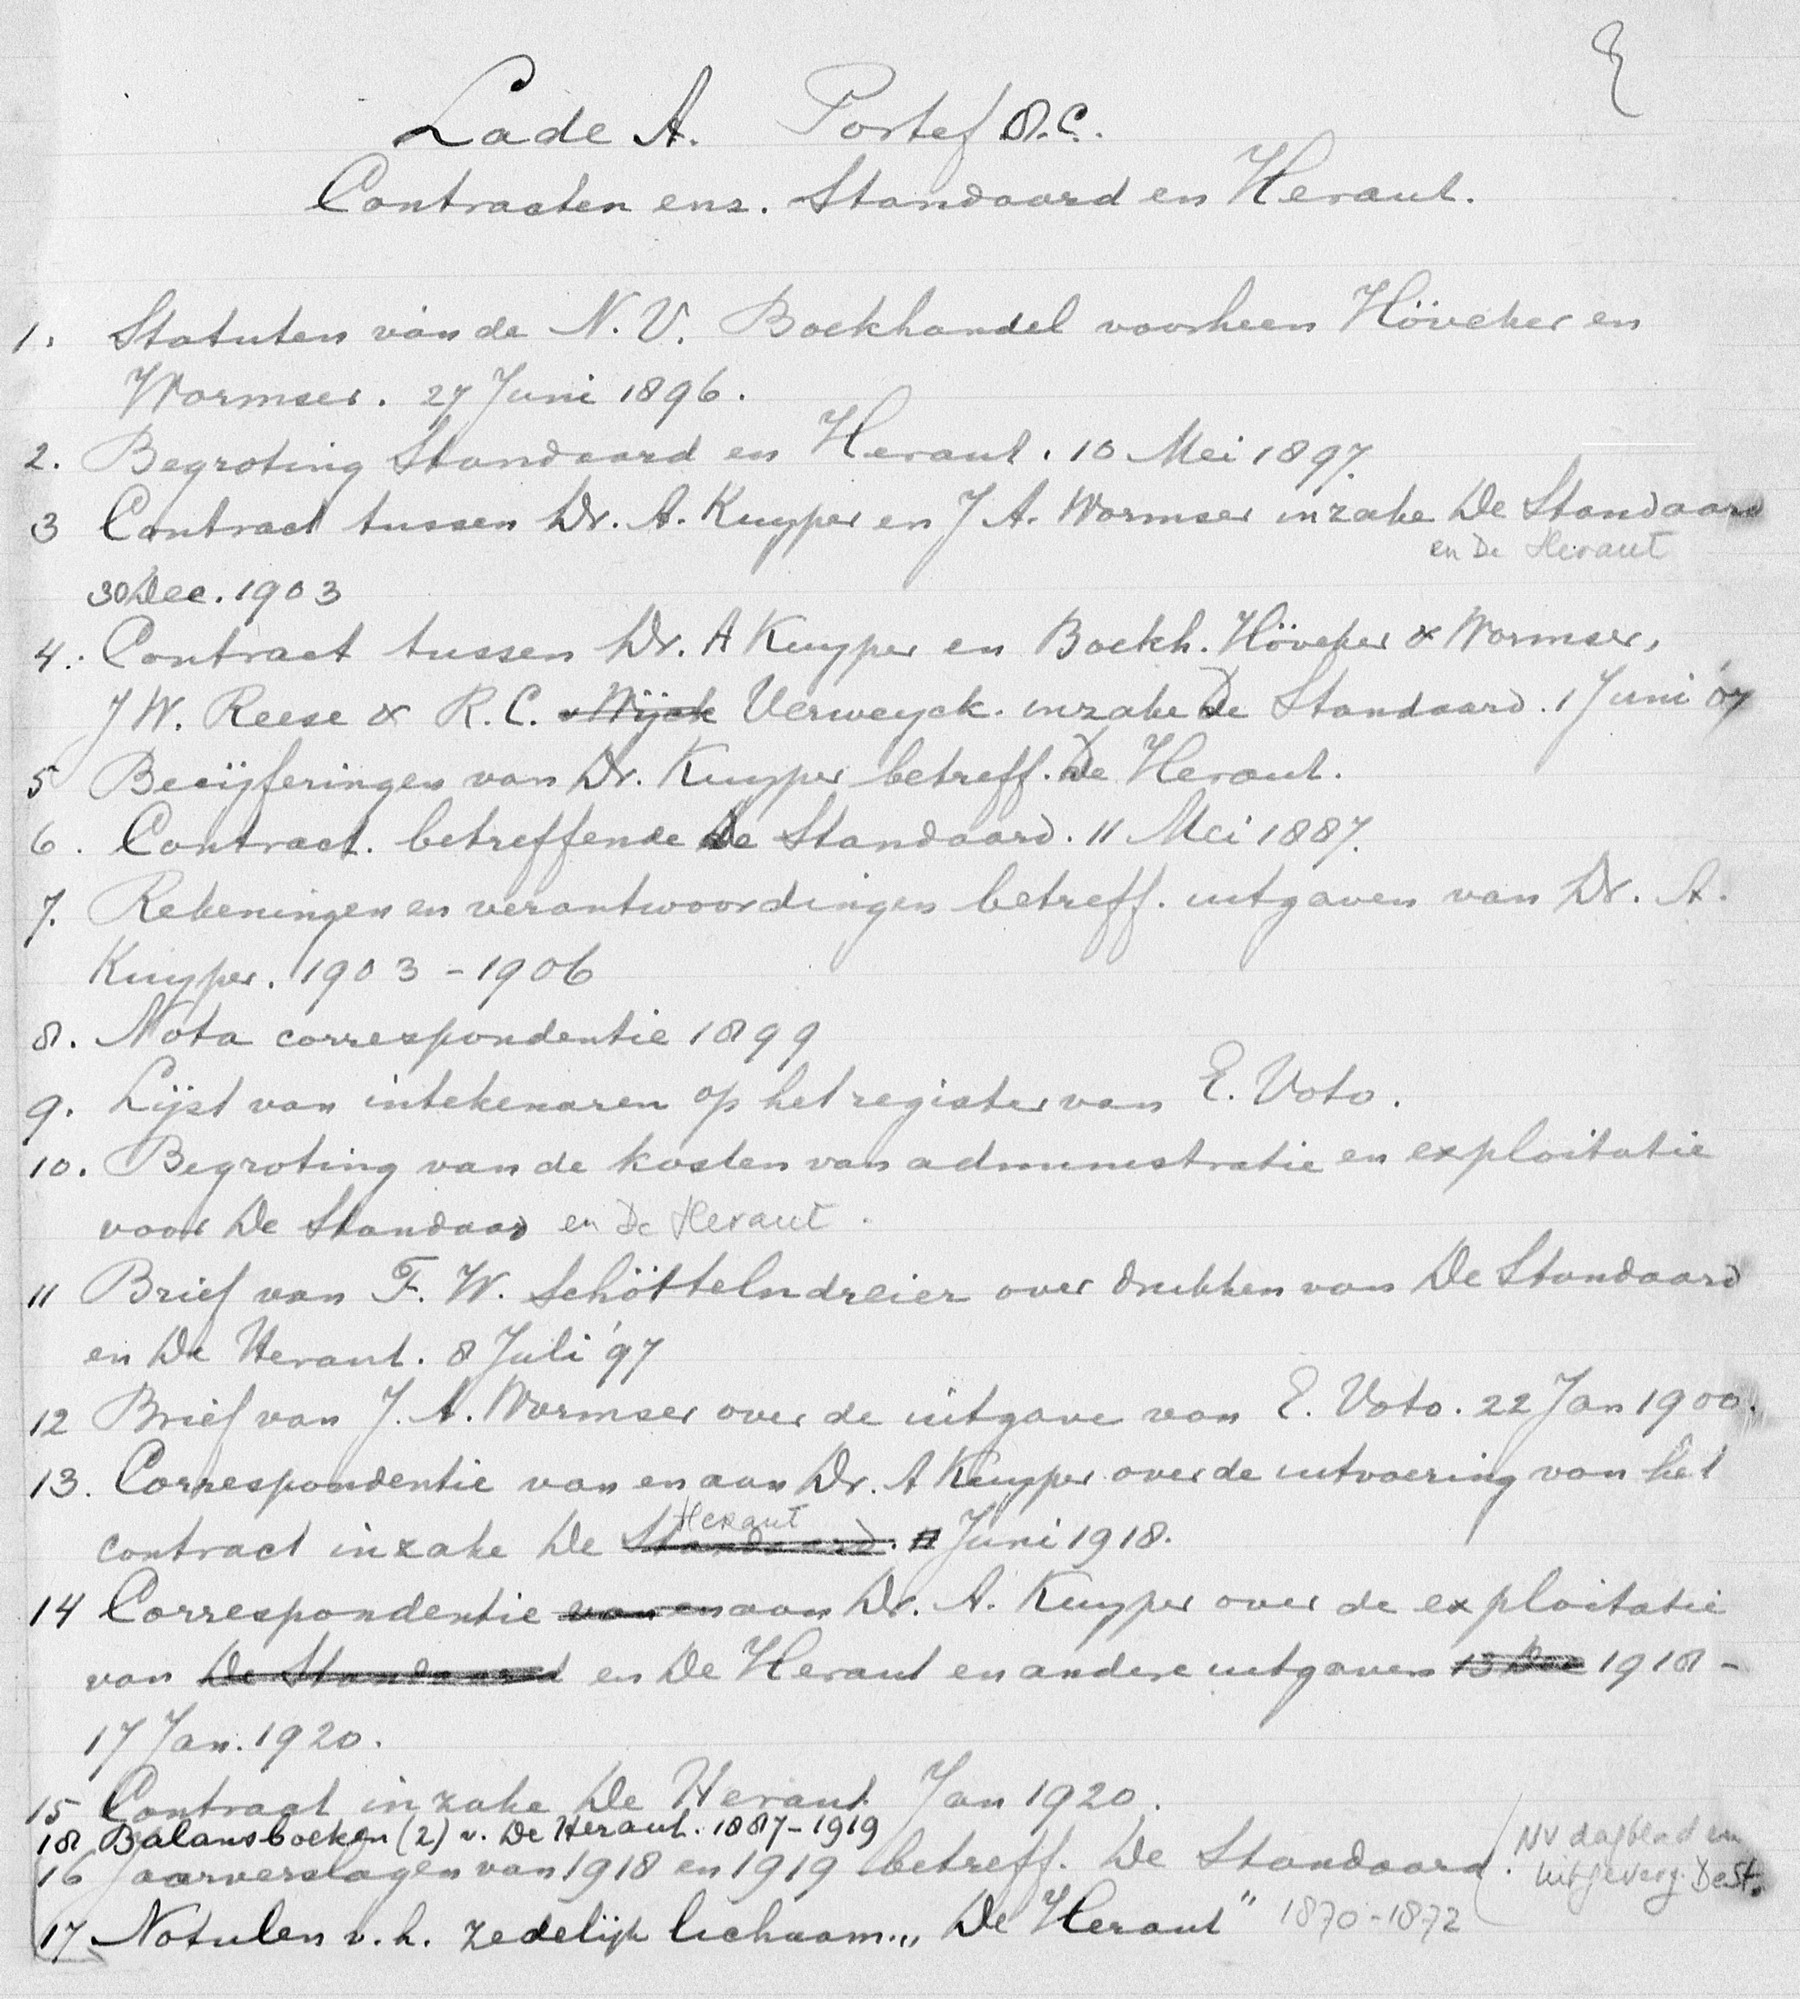 Lade A. Portef 8.C.
Contracten enz. Standaard en Heraut.
1. Statuten van de N.V. Boekhandel voorheen Höveker en
Wormser. 27 Juni 1896.
2. Begroting Standaard en Heraut. 10 Mei 1897.
3 Contract tussen Dr. A. Kuyper en J A. Wormser inzake De Standaard
en De Heraut
30 Dec. 1903
4. Contract tussen Dr. A Kuyper en Boekh. Höveker & Wormser,
J W. Reese & R.C. v Wijck Verweyck. inzake De Standaard. 1 Juni '07
5 Becijferingen van Dr. Kuyper betreff. De Heraut.
6. Contract. betreffende De Standaard. 11 Mei 1887.
7. Rekeningen en verantwoordingen betreff. uitgaven van Dr. A.
Kuyper. 1903-1906
8. Nota correspondentie 1899
9. Lijst van intekenaren op het register van E. Voto.
10. Begroting van de kosten van administratie en exploitatie
voor De Standaard en De Heraut.
11 Brief van F. W. Schöttelndreier over drukken van De Standaard
en De Heraut. 8 Juli '97
12 Brief van J. A. Wormser over de uitgave van E. Voto. 22 Jan 1900.
13. Correspondentie van en aan Dr. A Kuyper over de uitvoering van het
Heraut
contract inzake De Standaard. Juni 1918.
14 Correspondentie van en aan Dr. A. Kuyper over de exploitatie
van De Standaard en De Heraut en andere uitgaven 13 Dec 1918 -
17 Jan. 1920.
15 Contract inzake De Heraut Jan 1920.
18 Balansboeken (2) v. De Heraut. 1887-1919
16 Jaarverslagen van 1918 en 1919 betreff. De Standaard. (NV dagblad en
uitgeverij. De St.
17. Notulen v.h. zedelijk lichaam „De Heraut" 1870-1872